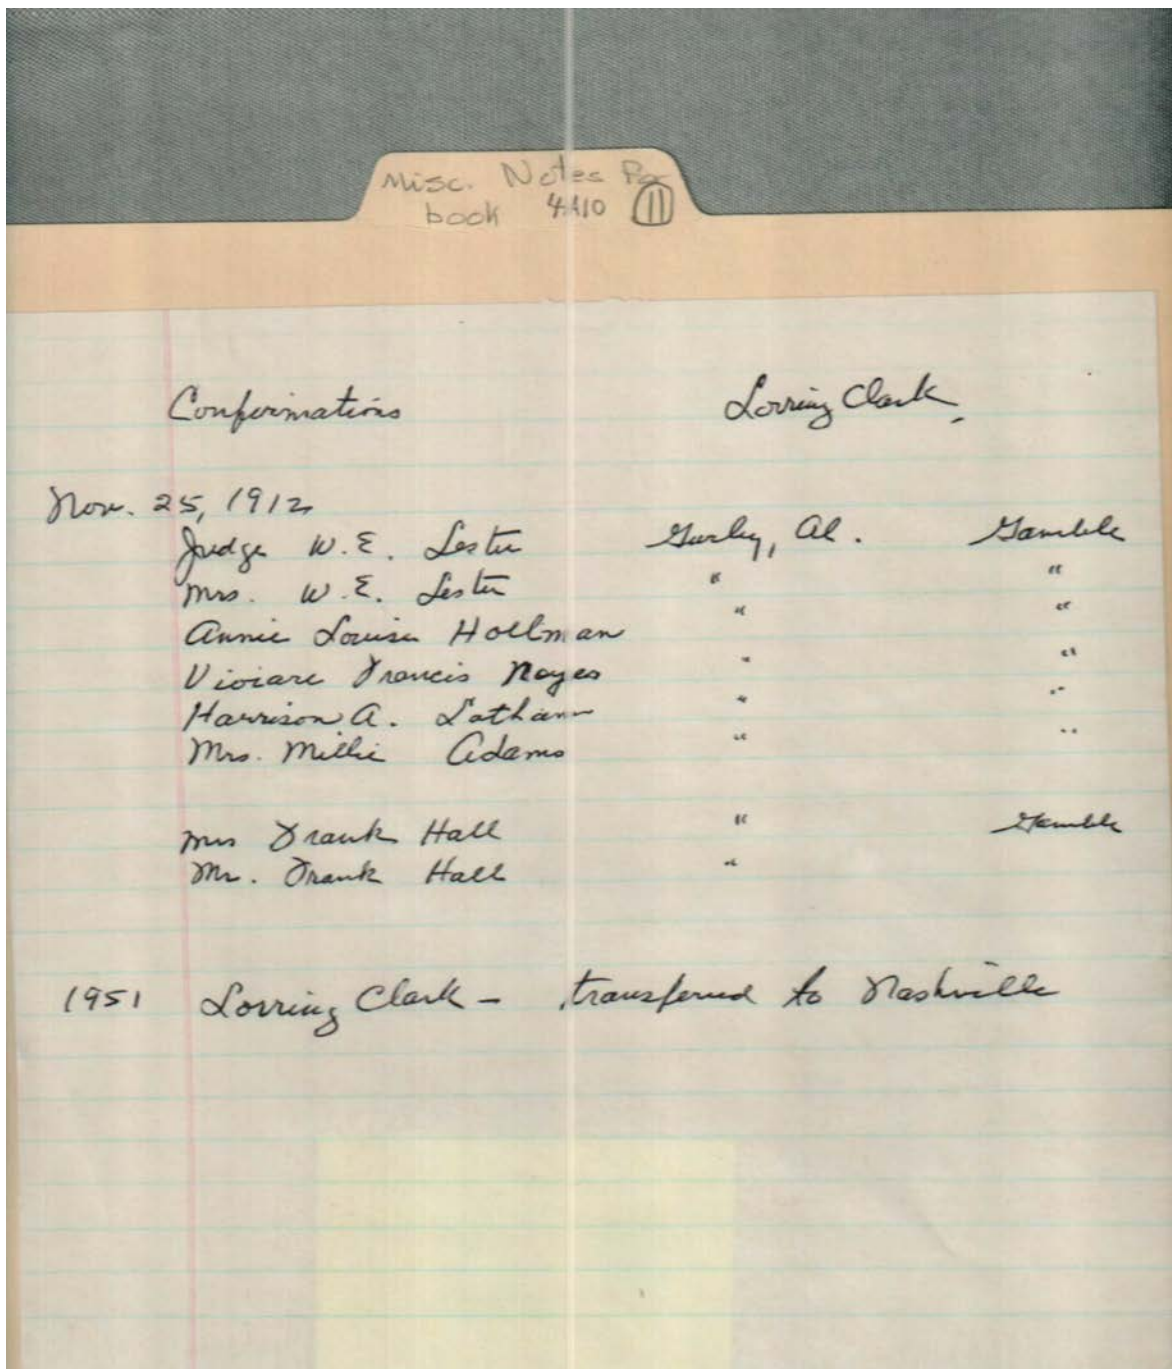 Misc. Notes For
book 4A10 11
Confirmations Lorring Clark
Nov. 25, 1912
Judge W.E. Lester Gurley, Al. Gamble
Mrs. W.E. Lester " "
Annie Louise Hollman " "
Viviare Francis Noyes " "
Harrison A. Latham " "
Mrs. Millie Adams " "
Mrs Frank Hall " Gamble
Mr. Frank Hall "
1951 Lorring Clark - transferred to Nashville